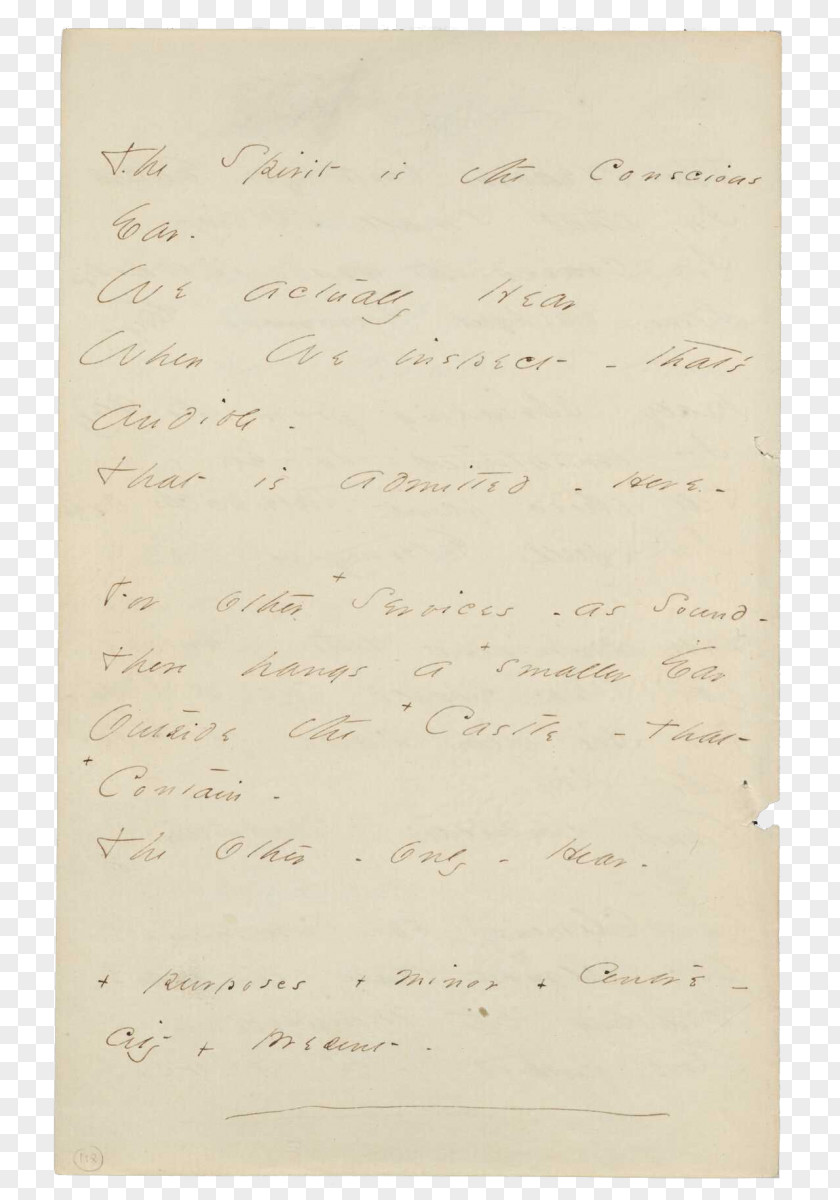 The Spirit is the Conscious
Ear.
We actually Hear
When We inspect - that's
audible -
That is admitted - Here -
For other + Services - as Sound -
There hangs a + smaller Ear
Outside the + Castle - that -
+ Contain -
The Other - Only - Hear -
+ purposes + minor + Centre -
City + present -
118